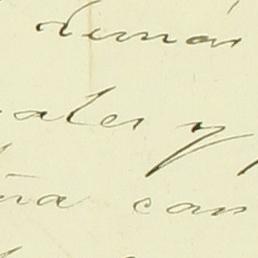 demás
ales y
ña con